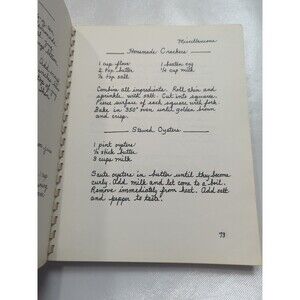 Miscellaneous
Homemade Crackers
1 cup flour
2 tbsp butter
½ tsp salt
1 beaten egg
¼ cup milk
Combine all ingredients. Roll thin and
sprinkle with salt. Cut into squares.
Pierce surface of each square with fork.
Bake in 350° oven until golden brown
and crisp.
Stewed Oysters
1 pint oysters
½ stick butter
3 cups milk
Saute oysters in butter until they become
curly. Add milk and let come to a boil.
Remove immediately from heat. Add salt
and pepper to taste.
73